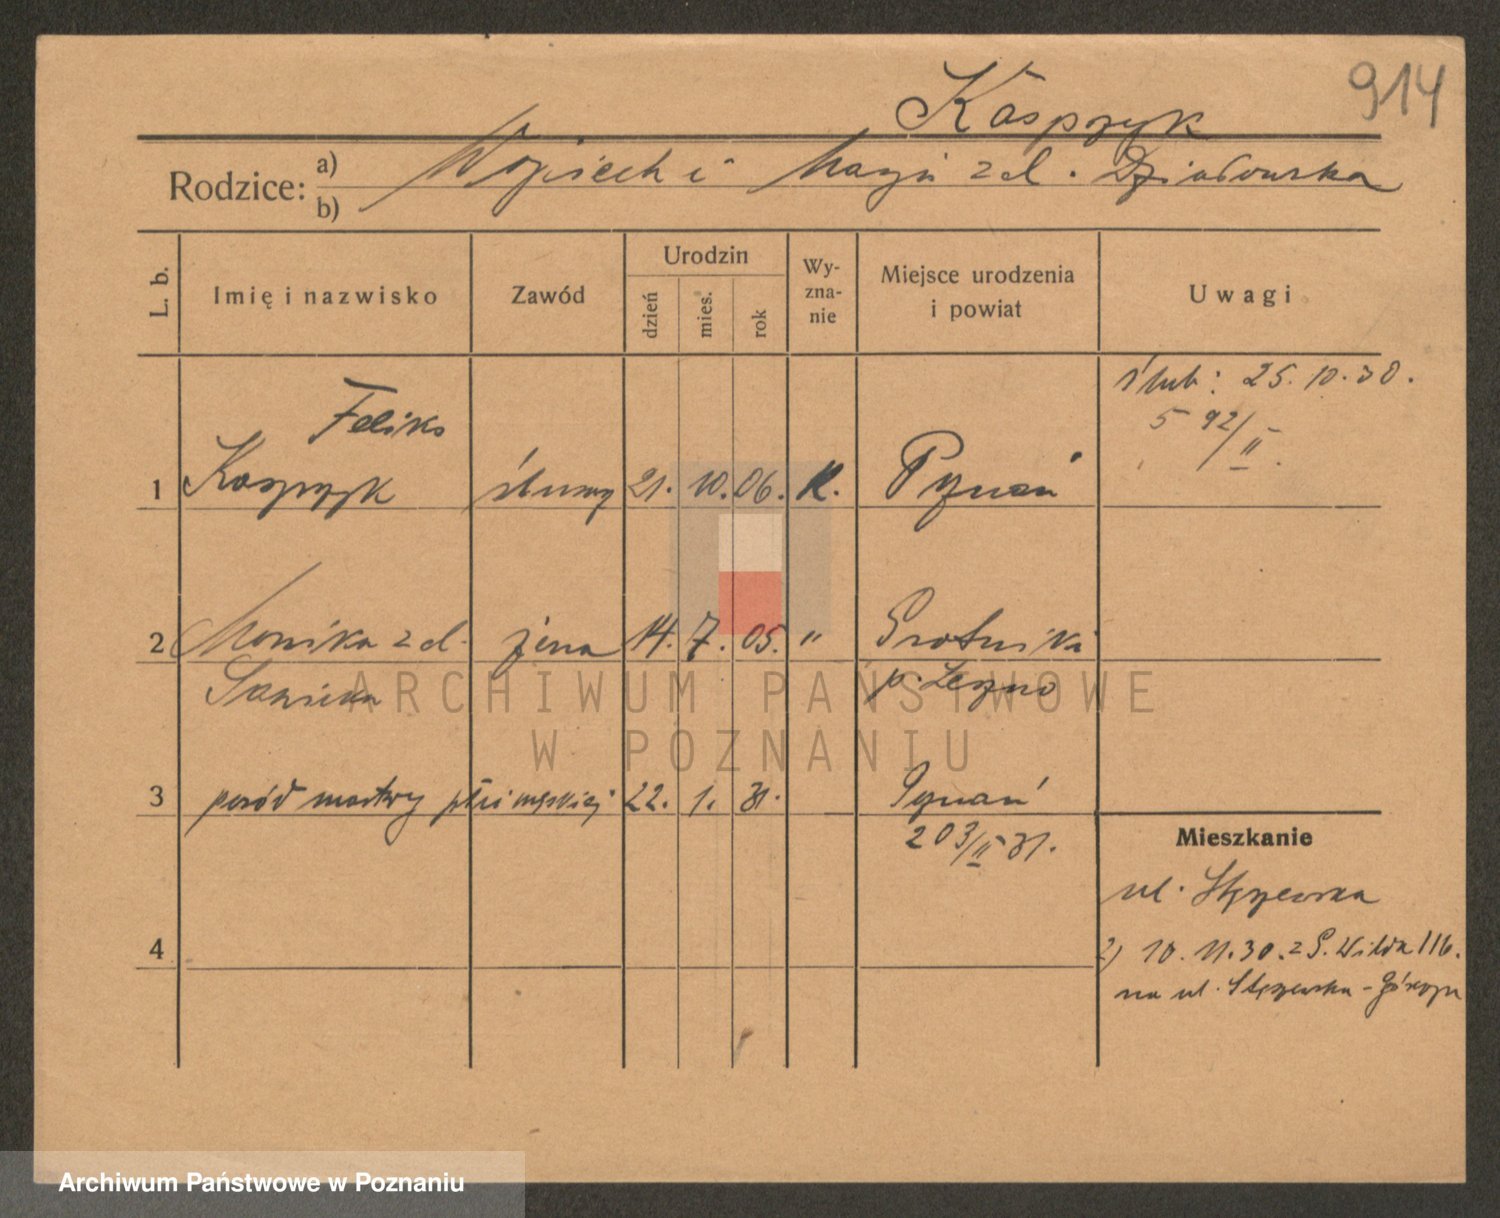 914
Kasprzyk
Rodzice: a) b) Wojciech i Maryi z d. Dziadowska
L. b.
Imię i nazwisko
Zawód
Urodzin
dzień
mies.
rok
Wy-
zna-
nie
Miejsce urodzenia
i powiat
Uwagi
ślub: 25. 10. 30.
592/II.
Feliks
1 Kasprzyk 21. 10. 06. K. Poznań
2 Monika z d. żona 14. 7. 05. "
Sawicka
3 poród martwy płci męskiej 22. 1. 31. Poznań
203/II 31.
Mieszkanie
ul. Stęszewska
4
2) 10. 11. 30. z G. Wilda 116.
na ul. Stęszewska -
ARCHIWUM PAŃSTWOWE
W POZNANIU
Archiwum Państwowe w Poznaniu